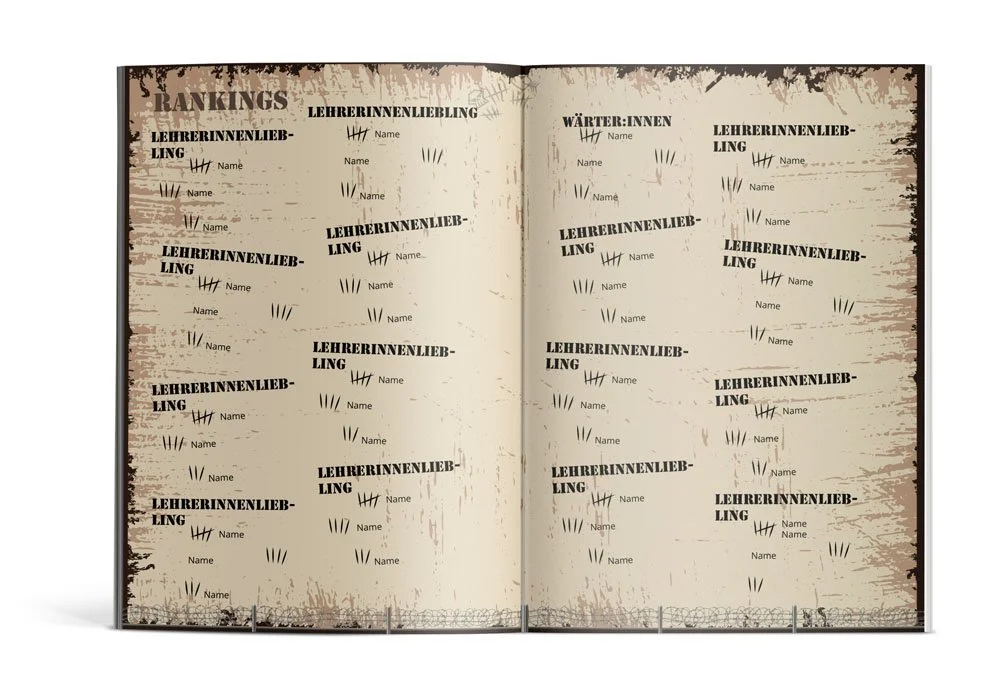 RANKINGS
LEHRERINNENLIEB-
LING
Name
Name
Name
LEHRERINNENLIEB-
LING
Name
Name
Name
LEHRERINNENLIEB-
LING
Name
Name
Name
LEHRERINNENLIEB-
LING
Name
Name
Name
LEHRERINNENLIEBLING
Name
Name
Name
LEHRERINNENLIEB-
LING
Name
Name
Name
LEHRERINNENLIEB-
LING
Name
Name
Name
LEHRERINNENLIEB-
LING
Name
Name
Name
WÄRTER:INNEN
Name
Name
Name
LEHRERINNENLIEB-
LING
Name
Name
Name
LEHRERINNENLIEB-
LING
Name
Name
Name
LEHRERINNENLIEB-
LING
Name
Name
Name
LEHRERINNENLIEB-
LING
Name
Name
Name
LEHRERINNENLIEB-
LING
Name
Name
Name
LEHRERINNENLIEB-
LING
Name
Name
Name
LEHRERINNENLIEB-
LING
Name
Name
Name